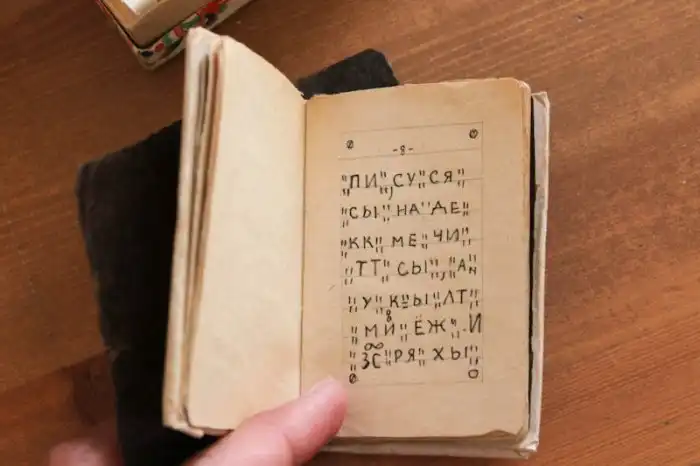 -8-
„ПИ„,СУ„СЯ„
„СЫ„НА„ДЕ„
„КК„МЕ„ЧИ„
„ТТ„СЫ„,„А„
„У„КЫ„ЛТ„
„МИ„ЁЖ„.И
„ЗС„РЯ„ХЫ„